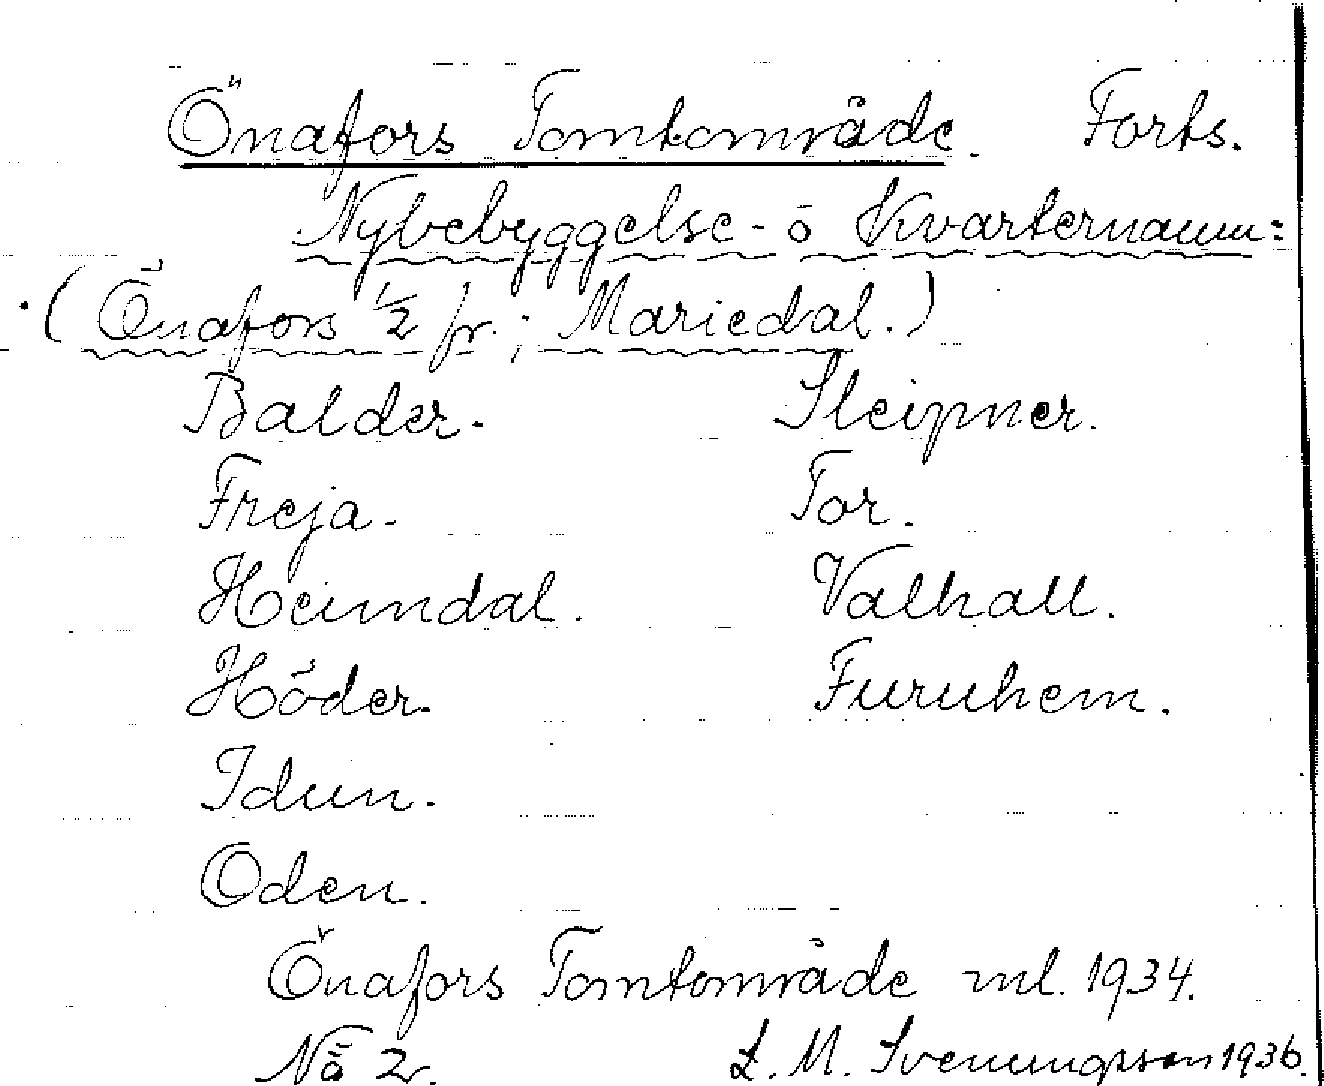 Önafors Tomtområde. Forts.
Nybebyggelse- o Kvarternamn:
(Önafors 1/2 fr.; Mariedal.)
Balder. Sleipner.
Freja. Tor.
Heimdal. Valhall.
Höder. Furuhem.
Idun.
Oden.
Önafors Tomtområde ml. 1934.
Nä 2r. L. M. Svenungsson 1936.